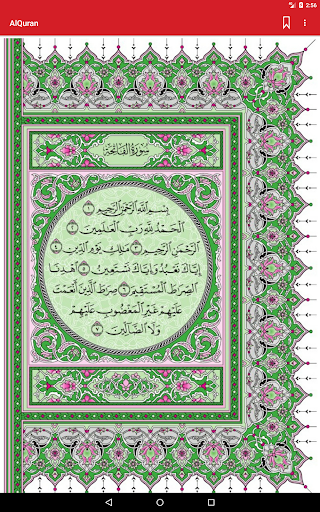 2:56
AlQuran
سورة الفاتحة
بِسْمِ ٱللَّهِ ٱلرَّحْمَٰنِ ٱلرَّحِيمِ ١
ٱلْحَمْدُ لِلَّهِ رَبِّ ٱلْعَٰلَمِينَ ٢
ٱلرَّحْمَٰنِ ٱلرَّحِيمِ ٣ مَٰلِكِ يَوْمِ ٱلدِّينِ ٤
إِيَّاكَ نَعْبُدُ وَإِيَّاكَ نَسْتَعِينُ ٥ ٱهْدِنَا
ٱلصِّرَٰطَ ٱلْمُسْتَقِيمَ ٦ صِرَٰطَ ٱلَّذِينَ أَنْعَمْتَ
عَلَيْهِمْ غَيْرِ ٱلْمَغْضُوبِ عَلَيْهِمْ
وَلَا ٱلضَّآلِّينَ ٧